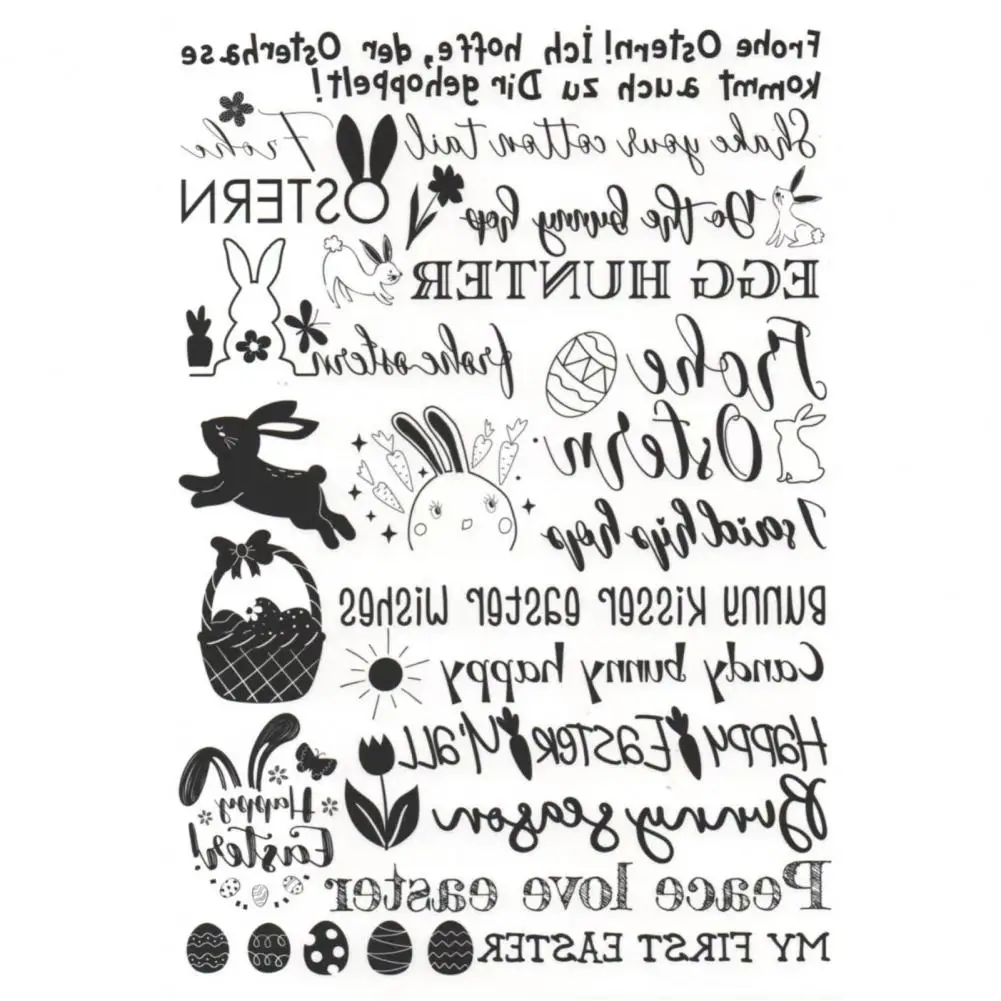 Frohe Ostern! Ich hoffe, der Osterhase
kommt auch zu Dir gehoppelt!
Shake your cotton tail
Frohe
OSTERN
Do the bunny hop
EGG HUNTER
frohe ostern
Frohe
Ostern
I said hip hop
Bunny kisser easter wishes
Candy bunny happy
HAPPY EASTER Y'ALL
Happy
Easter!
Bunny season
Peace love easter
MY FIRST EASTER